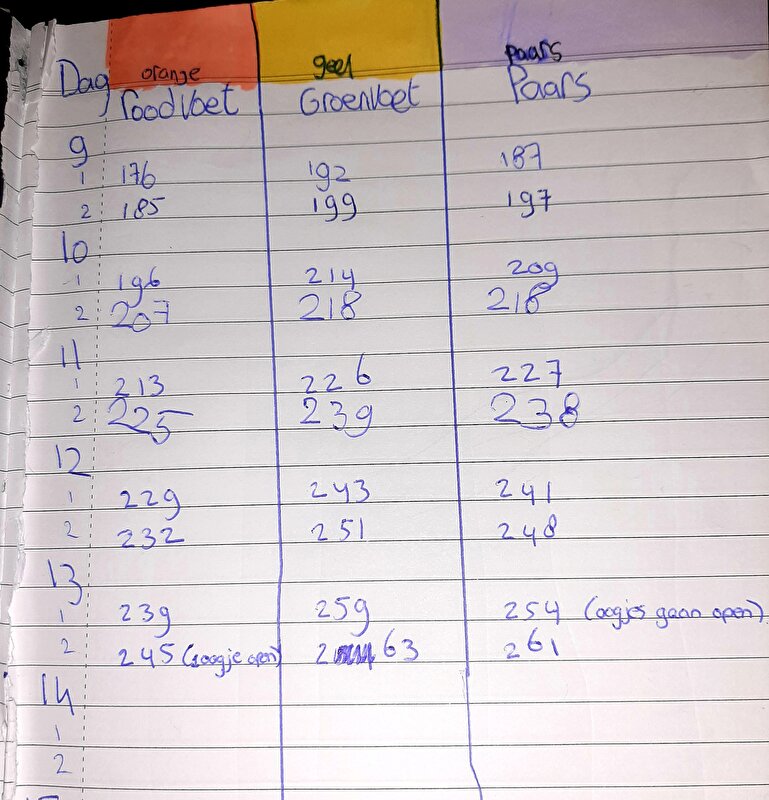 orange geel paars
Dag roodvoet Groenvoet Paars
9
1 176 192 187
2 185 199 197
10
1 196 214 209
2 207 218 218
11
1 213 226 227
2 225 239 238
12
1 229 243 241
2 232 251 248
13
1 239 259 254 (oogjes gaan open)
2 245 (1 oogje open) 2 63 261
14
1
2